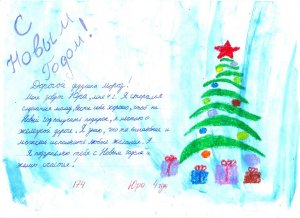 С
Новым
Годом!
Дорогой дедушка Мороз!
Меня зовут Юра, мне 4 г. Я старался
слушаться маму, вести себя хорошо, чтоб на
Новый год получить подарок, я мечтаю о
железной дороге. Я знаю, что ты волшебник и
можешь исполнить любое желание.
Я поздравляю тебя с Новым годом и
желаю счастья!
174
Юра 4 года